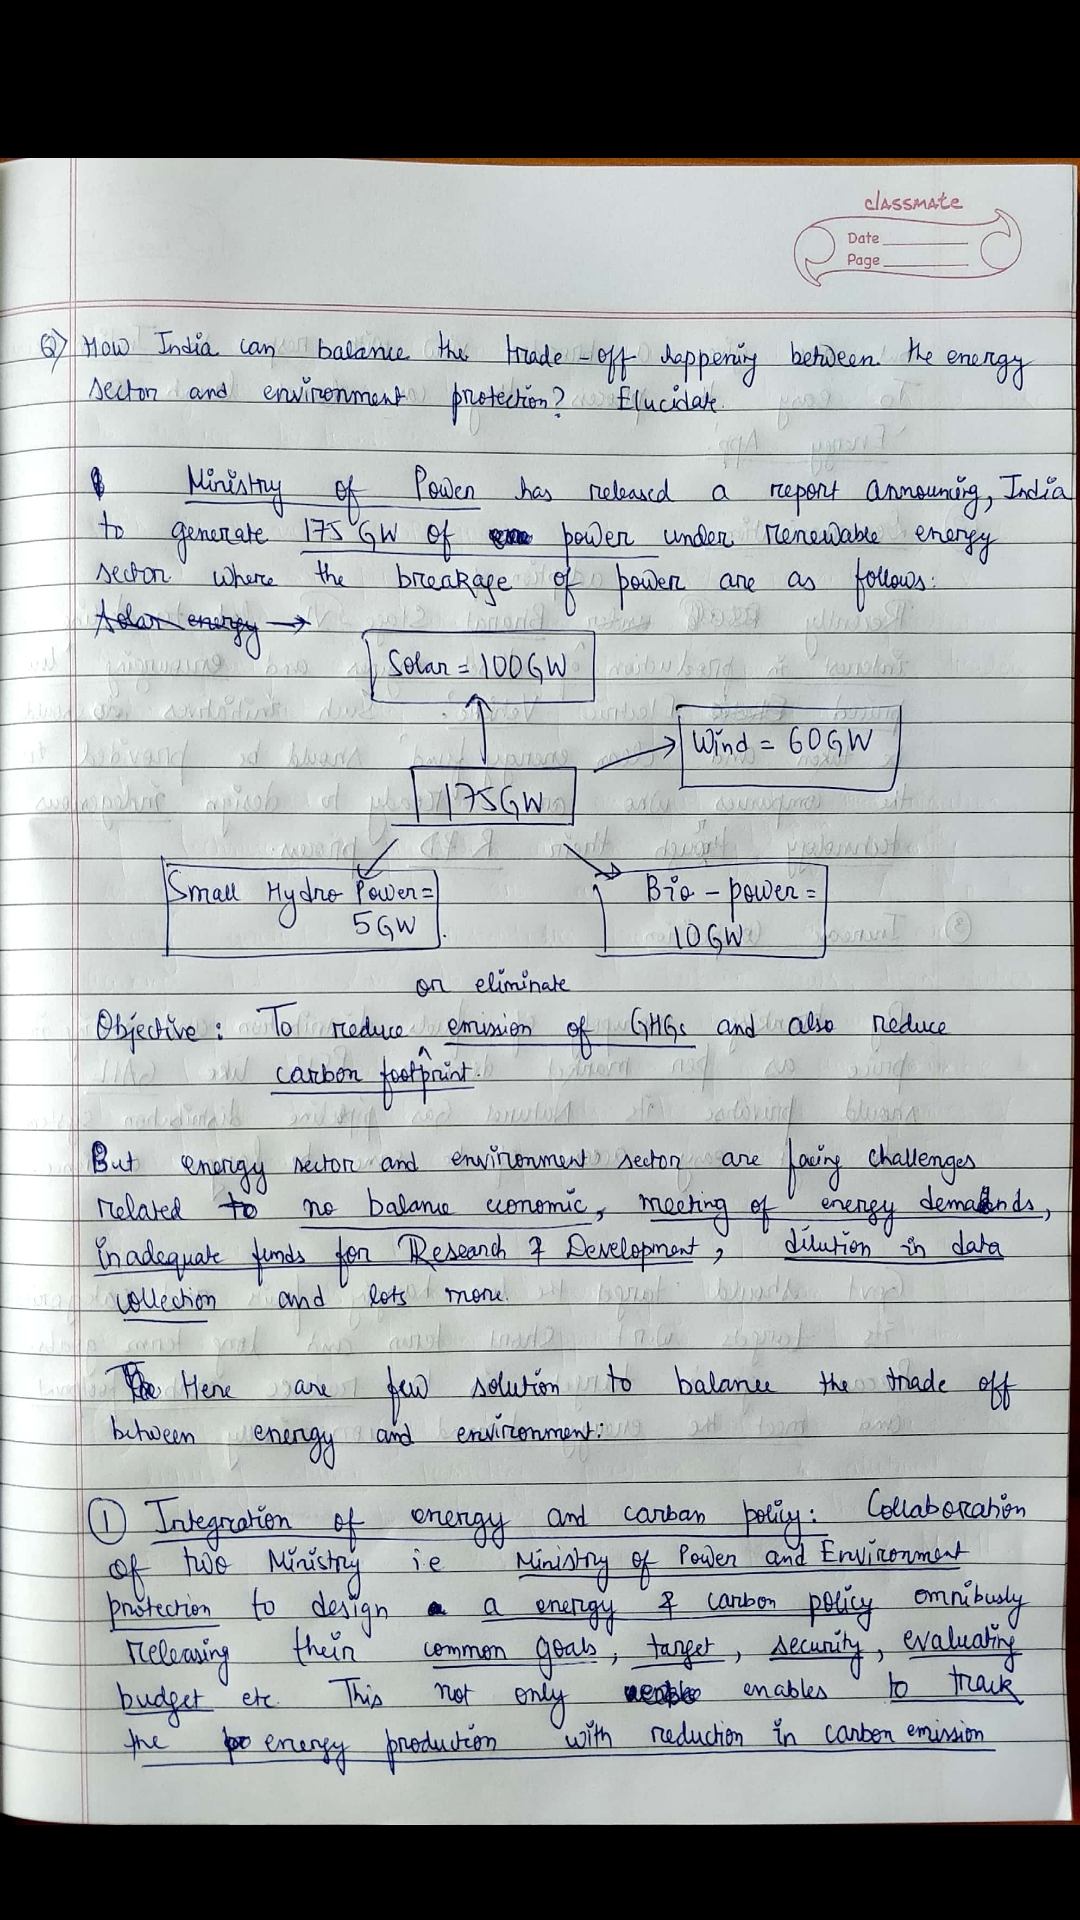 classmate
Date
Page
Q) How India can balance the trade-off happening between the energy
sector and environment protection? Elucidate.
Ministry of Power has released a report announcing, India
to generate 175 GW of power under renewable energy
sector where the breakage of power are as follows:
Solar energy →
Solar = 100GW
Wind = 60GW
175GW
Small Hydro Power =
5GW
Bio-power =
10GW
or eliminate
Objective: To reduce ^ emission of GHGs and also reduce
carbon footprint.
But energy sector and environment sector are facing challenges
related to no balance economic, meeting of energy demands,
inadequate funds for Research & Development, dilution in data
collection and lots more.
Here are few solution to balance the trade off
between energy and environment:
① Integration of energy and carban policy: Collaboration
of two Ministry i.e Ministry of Power and Environment
protection to design a energy & carbon policy omnibusly
releasing their common goals, target, security, evaluating
budget etc. This not only enables to track
the energy production with reduction in carbon emission